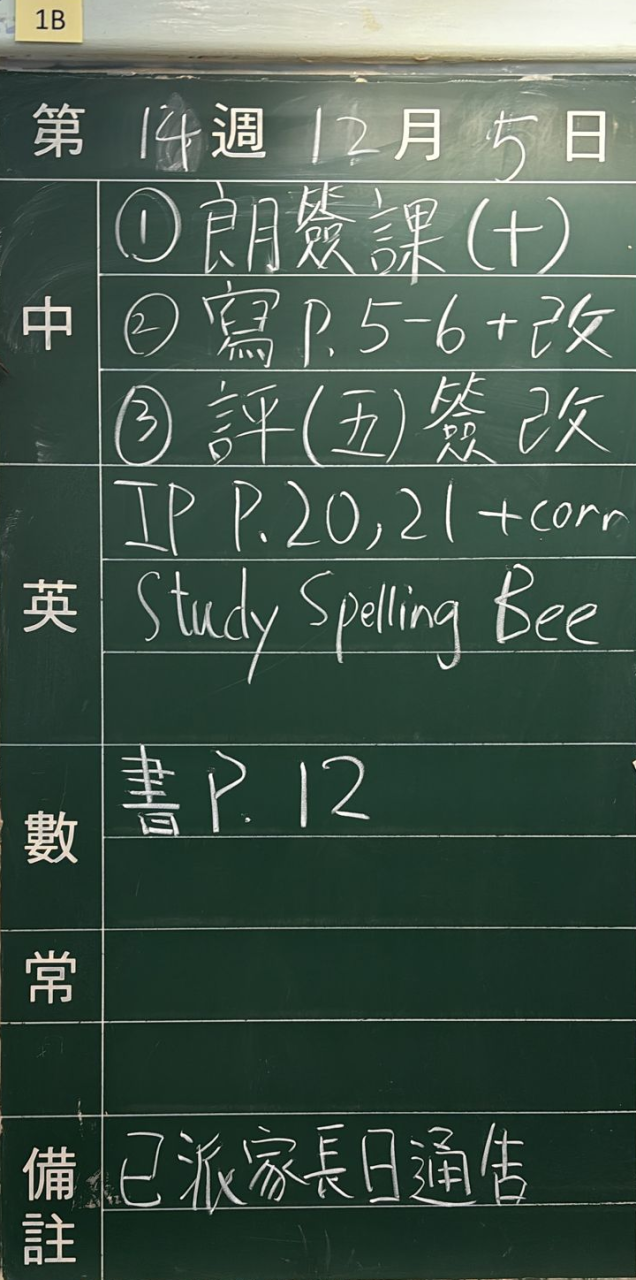 1B
第 14 週 12 月 5 日
中
① 朗簽課(十)
② 寫 P. 5-6 + 改
③ 評(五)簽改
英
IP P. 20, 21 + corr
Study Spelling Bee
數
書 P. 12
常
備註
已派家長日通告